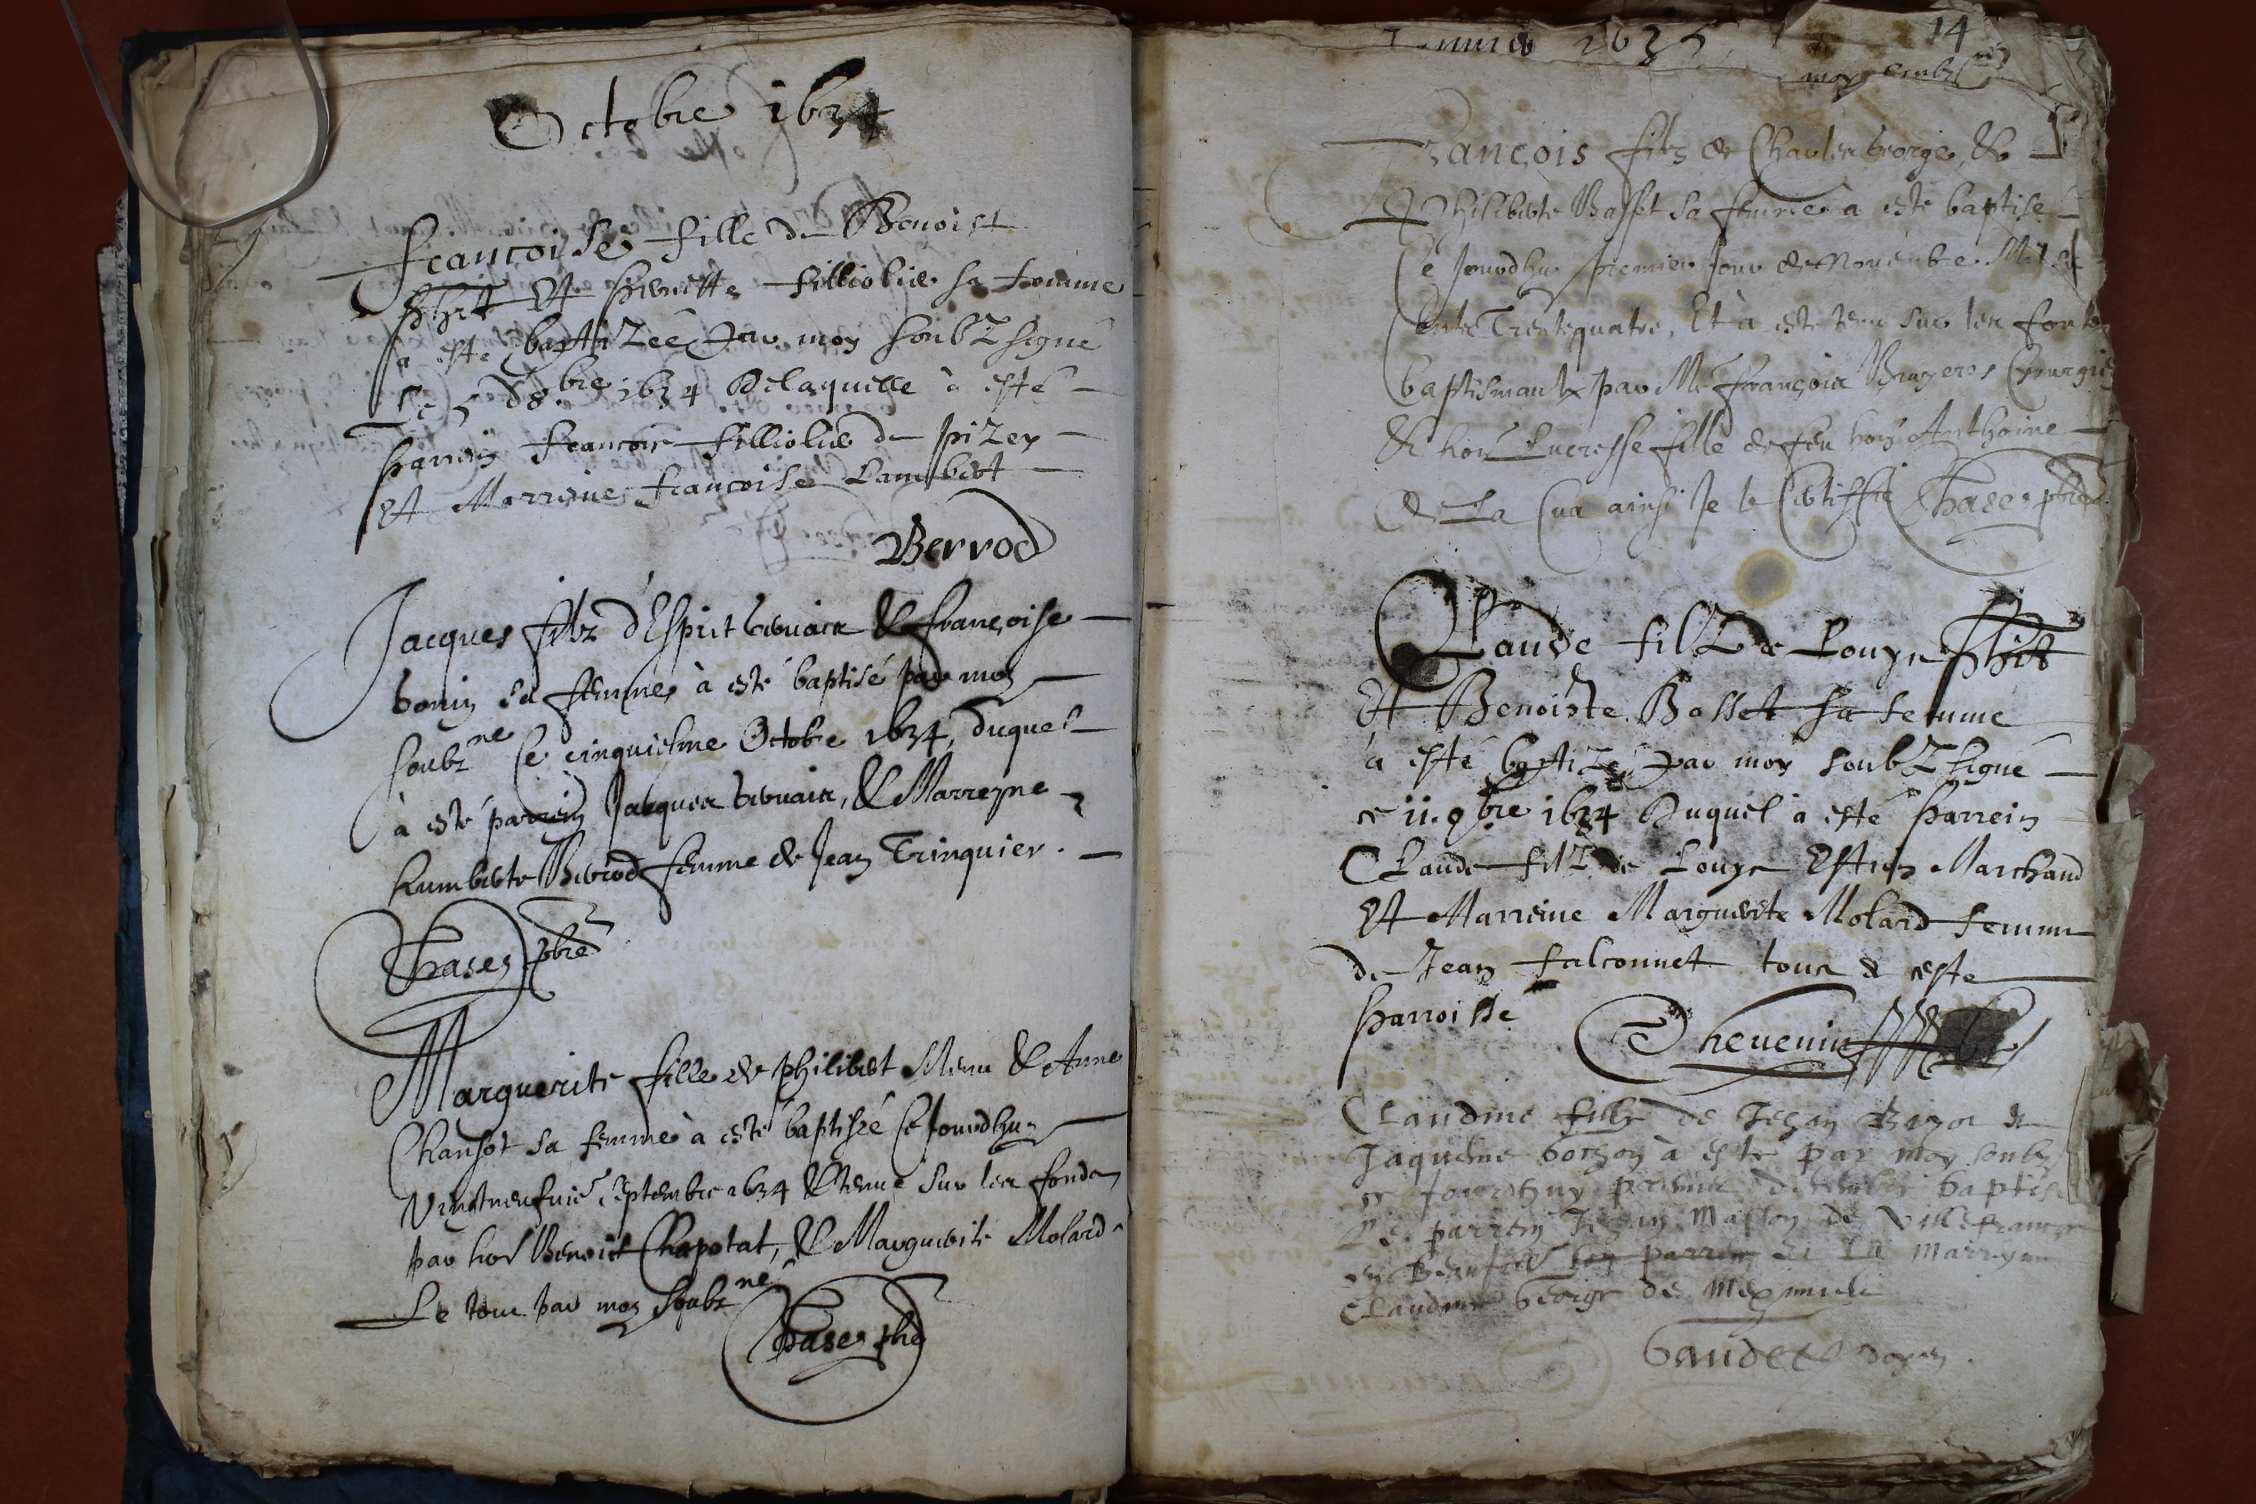 Octobre 1634
françoise fille de Benoist
et pierrette filliolie sa femme
a esté baptizée par moy soubz signé
le 5 d 8.bre 1634 de laquelle à esté
parrein francois filliolie de pizey
et Marreine francoise Lambert
Berrod
Jacques filz d'Esprit & françoise
bonin sa femme à esté baptisé par moy
soubz.ne ce cinquiesme Octobre 1634, duquel
à esté parrein Jacques, & Marreyne
humberte Berrod femme de Jean Trinquier.
Chasey pbre
Marguerite fille de philibert Menu & Anne
Chansot sa femme à esté baptisée ce Jourdhuy
Vingtneufuie septembre 1634 & tenue sur les fonds
par ho. Benoist Chapotat, & Marguerite Molard
Le tout par moy soubz.ne
Chasey pbre
1635
14
françois filz de Charles george, &
philiberte Basset sa femme à esté baptisé
Ce Jourdhuy premier Jour de Nouembre Mil six
Centz Trentequatre, Et à esté tenu sur les fontz
baptismaulx par Me françois Bruyeres Chirurgie
& hon. Lucresse fille de feu hon. Anthoine
de La Cua ainsi Je le Certiffie Chasey pbre
Claude filz de Louys
et Benoiste Basset sa femme
à esté baptizé par moy soubz signé
ce 11. 9bre 1634 duquel à esté parrein
Claude filz de Louys Marchand
et Marreine Marguerite Molard femme
de Jean falconnet tous d ceste
parroisse
Theuenin
Claudine fille de Jehan &
Jaqueme bochon à este par moy soubz
Jourdhuy premier decembre baptis
parrein Jehan Masson de Villefranche
parrein et la marreyne
Claudine george de Meximieu
Gaudet doyen.